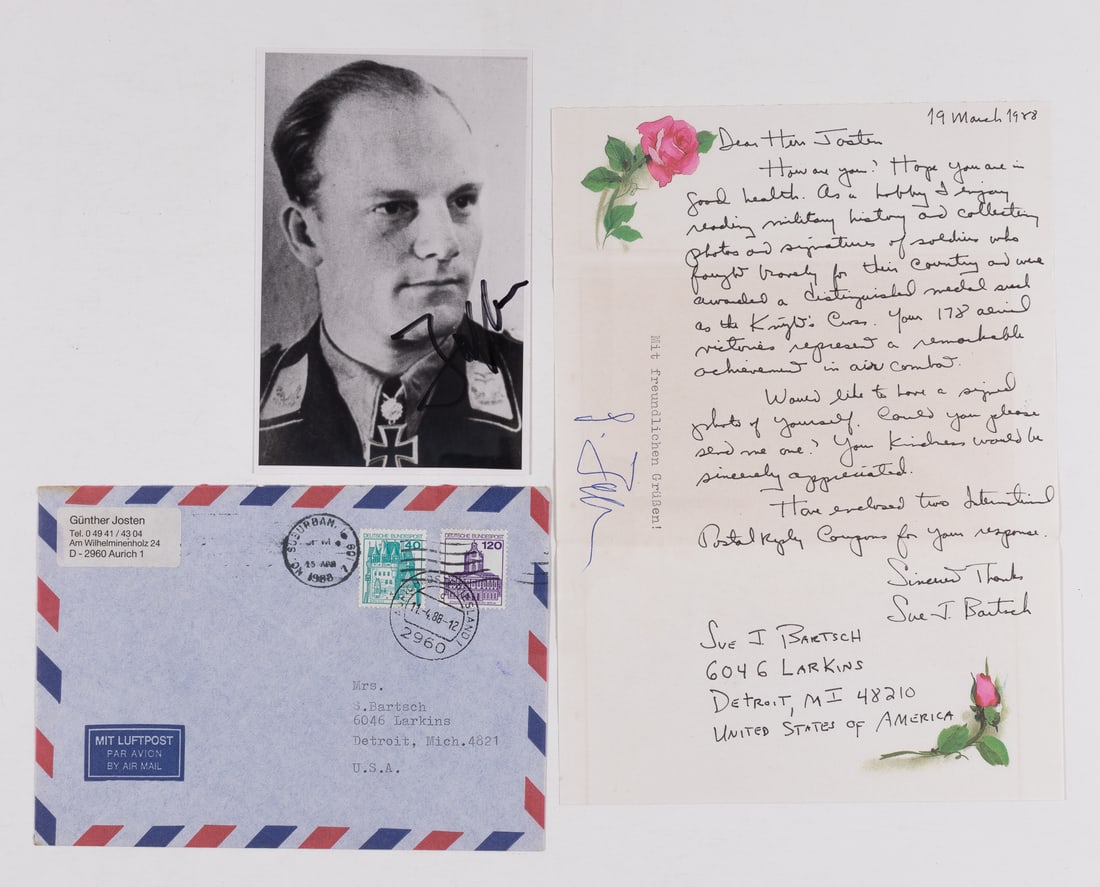 Günther Josten
Tel. 0 49 41 / 43 04
Am Wilhelminenholz 24
D - 2960 Aurich 1
SUBURBAN,
15 APR
1988
DEUTSCHE BUNDESPOST
40
DEUTSCHE BUNDESPOST
120
11.-4.88-12
2960
Mrs.
S.Bartsch
6046 Larkins
Detroit, Mich.4821
U.S.A.
MIT LUFTPOST
PAR AVION
BY AIR MAIL
19 March 1988
Dear Herr Josten
How are you? Hope you are in
good health. As a hobby I enjoy
reading military history and collecting
photos and signatures of soldiers who
fought bravely for their country and were
awarded a distinguished medal such
as the Knight's Cross. Your 178 aerial
victories represent a remarkable
achievement in air combat.
Would like to have a signed
photo of yourself. Could you please
send me one? Your kindness would be
sincerely appreciated.
Have enclosed two International
Postal Reply Coupons for your response.
Sincere Thanks
Sue J. Bartsch
SUE J. BARTSCH
6046 LARKINS
DETROIT, MI 48210
UNITED STATES OF AMERICA
Mit freundlichen Grüßen!